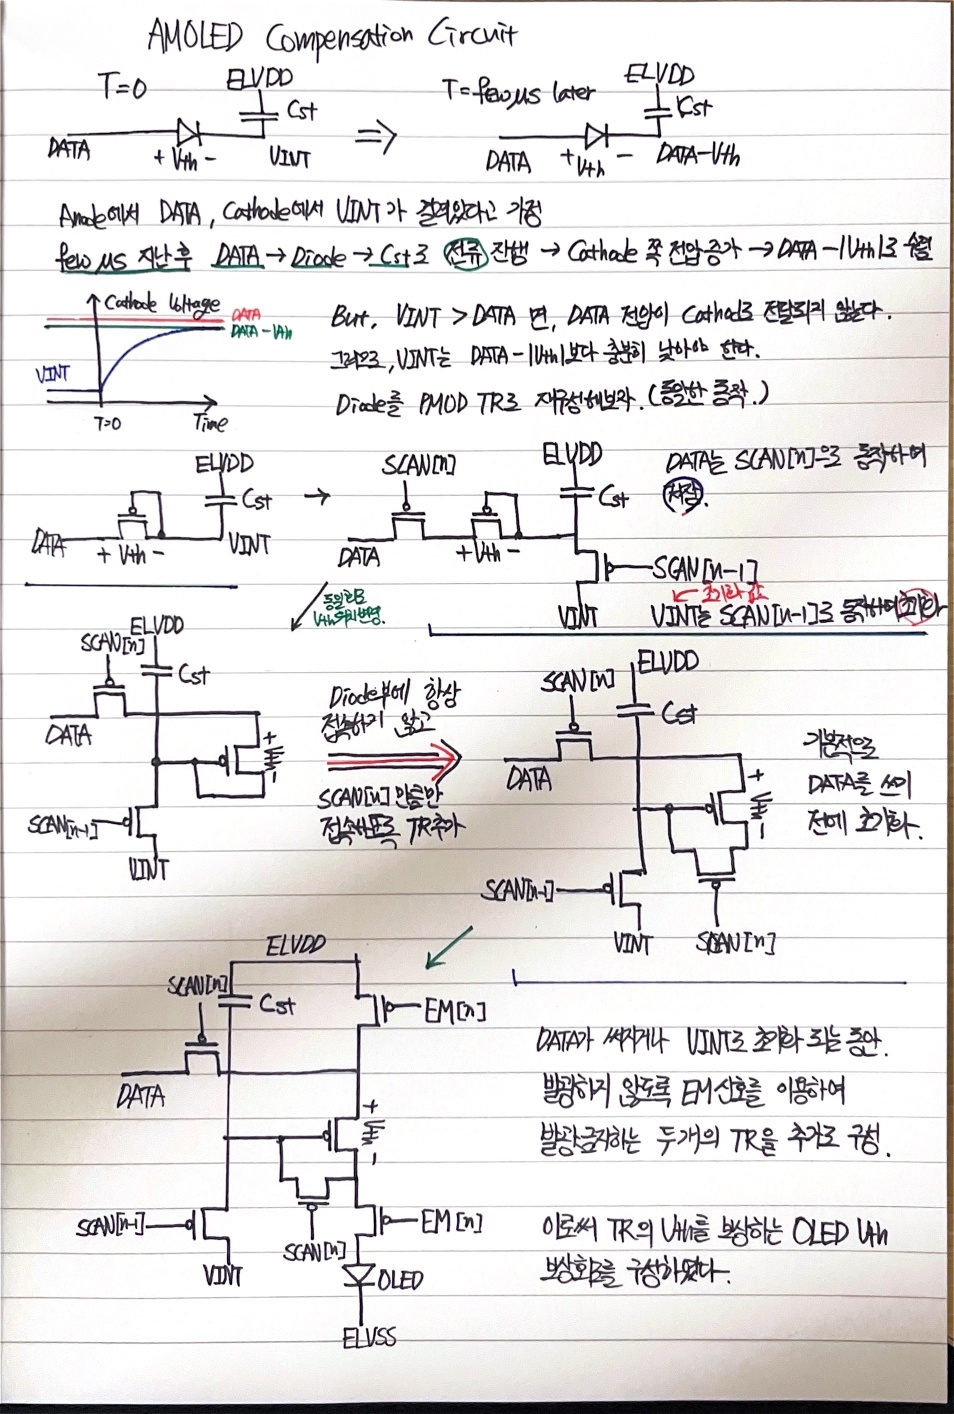 AMOLED Compensation Circuit
T=0
ELVDD
Cst
DATA
+ Vth -
VINT
⇒
T=few μs later
ELVDD
Cst
DATA
+ Vth -
DATA-Vth
Anode에서 DATA, Cathode에서 VINT가 걸려있다고 가정
few μs 지난 후 DATA → Diode → Cst로 전류 진행 → Cathode 쪽 전압 증가 → DATA-|Vth|로 수렴
Cathode Voltage
DATA
DATA-Vth
VINT
T=0
Time
But, VINT > DATA 면, DATA 전압이 Cathod로 전달되지 않는다.
그러므로, VINT는 DATA-|Vth|보다 충분히 낮아야 한다.
Diode를 PMOD TR로 재구성해보자. (동일한 동작.)
ELVDD
Cst
DATA
+ Vth -
VINT
→
SCAN[n]
ELVDD
Cst
DATA
+ Vth -
SCAN[n-1]
VINT
DATA는 SCAN[n]으로 동작하여
저장.
초기화 값
VINT는 SCAN[n-1]로 동작하여 초기화
동일회로
Vth 위치변경.
ELVDD
SCAN[n]
Cst
DATA
+ Vth -
SCAN[n-1]
VINT
Diode부에 항상
접속하지 않고
SCAN[n] 만을만
접속하도록 TR추가
SCAN[n]
ELVDD
Cst
DATA
+ Vth -
SCAN[n-1]
VINT
SCAN[n]
기본적으로
DATA를 쓰기
전에 초기화.
ELVDD
SCAN[n]
Cst
EM[n]
DATA
+ Vth -
SCAN[n-1]
SCAN[n]
EM[n]
VINT
OLED
ELVSS
DATA가 써지거나 VINT로 초기화 되는 동안.
발광하지 않도록 EM신호를 이용하여
발광금지하는 두개의 TR을 추가로 구성.
이로써 TR의 Vth를 보상하는 OLED Vth
보상회로를 구성하였다.